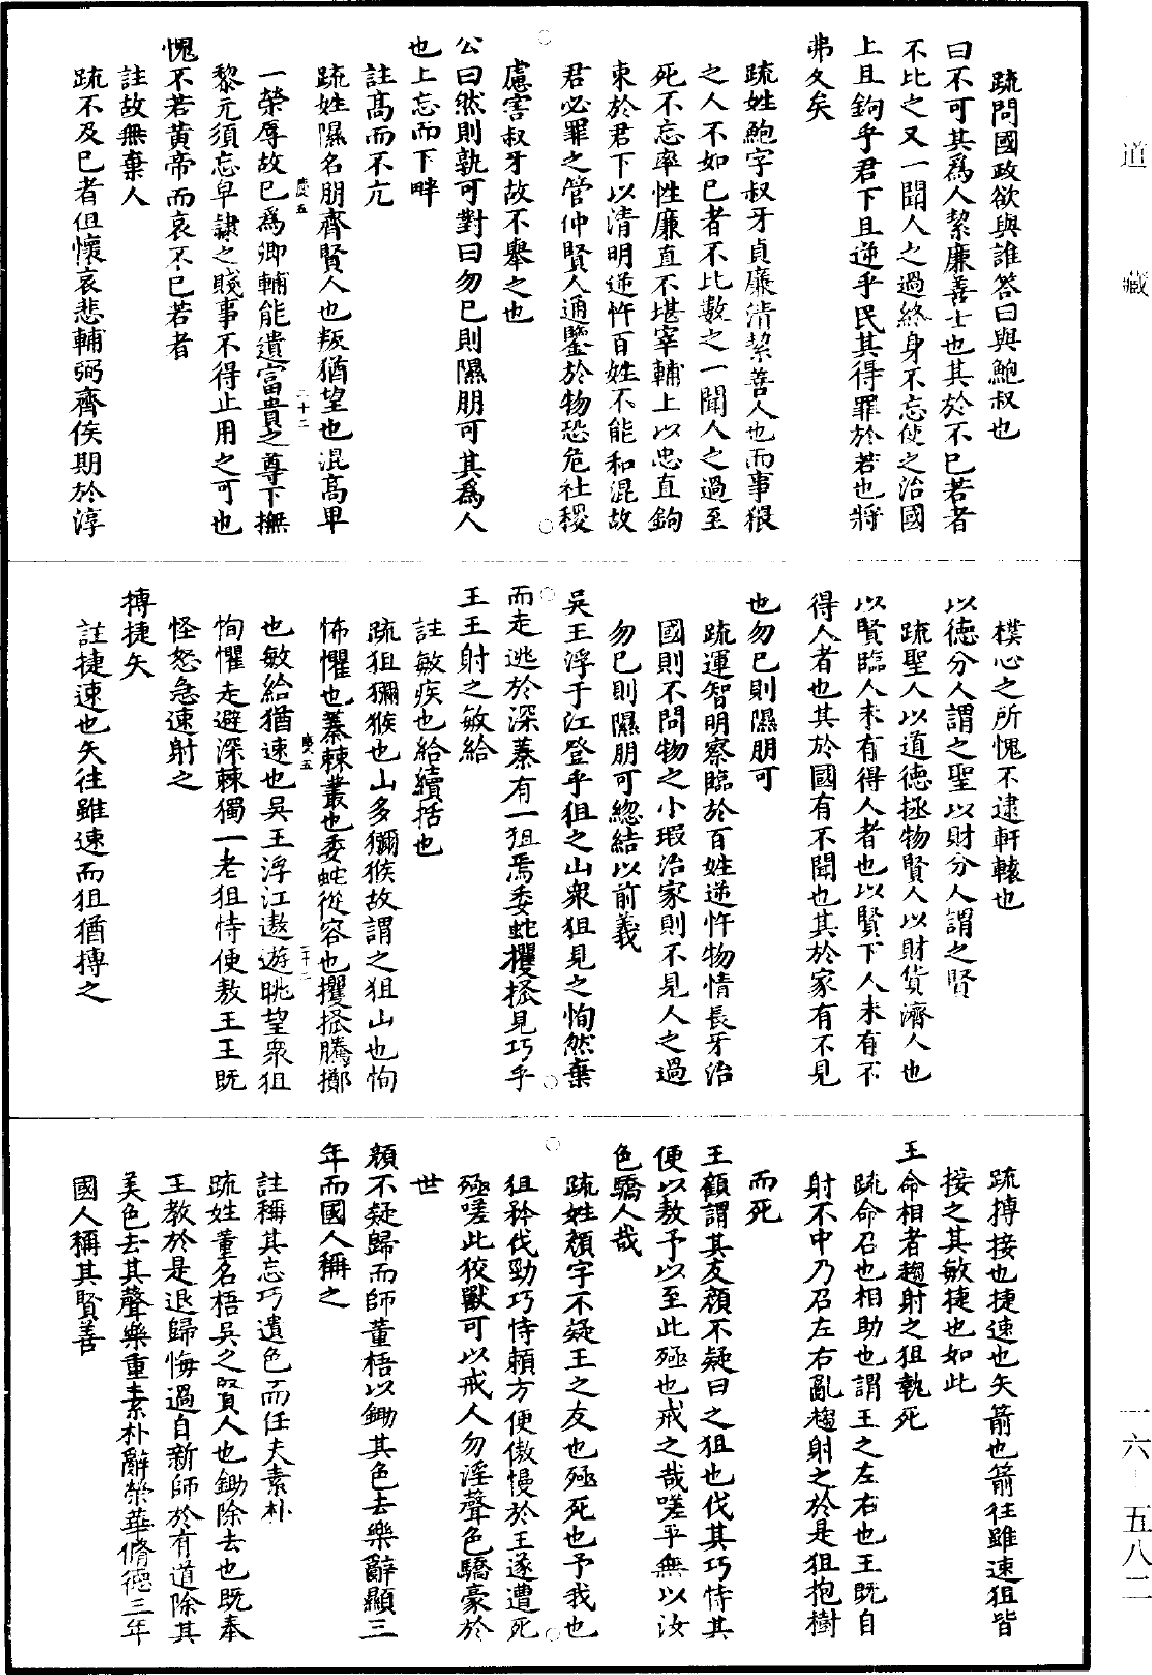 道藏
疏問國政欲與誰答曰與鮑叔也
曰不可其爲人絜廉善士也其於不已若者
不比之又一聞人之過終身不忘使之治國
上且鉤乎君下且逆乎民其得罪於若也將
弗久矣
疏姓鮑字叔牙貞廉清絜善人也而事猥
之人不如已者不比數之一聞人之過至
死不忘率性廉直不堪宰輔上以忠直鉤
束於君下以清明逆忤百姓不能和混故
君必罪之管仲賢人通鑒於物恐危社稷
慮害叔牙故不舉之也
公曰然則孰可對曰勿已則隰朋可其爲人
也上忘而下畔
註高而不亢
疏姓隰名朋齊賢人也叛猶望也混高卑
一榮辱故已爲卿輔能遺富貴之尊下撫
黎元須忘卑隸之賤事不得止用之可也
愧不若黃帝而哀不已若者
註故無棄人
疏不及已者但懷哀悲輔弼齊侯期於淳
樸心之所愧不逮軒轅也
以德分人謂之聖以財分人謂之賢
疏聖人以道德拯物賢人以財貨濟人也
以賢臨人未有得人者也以賢下人未有不
得人者也其於國有不聞也其於家有不見
也勿已則隰朋可
疏運智明察臨於百姓逆忤物情長牙治
國則不問物之小瑕治家則不見人之過
勿已則隰朋可緫結以前義
吳王浮于江登乎狙之山衆狙見之恂然棄
而走逃於深蓁有一狙焉委蛇攫搔見巧乎
王王射之敏給
註敏疾也給續括也
疏狙獼猴也山多獼猴故謂之狙山也恂
怖懼也蓁棘叢也委蛇從容也攫搔騰擲
也敏給猶速也吳王浮江遨遊眺望衆狙
恂懼走避深棘獨一老狙恃便敖王王既
怪怒急速射之
搏捷矢
註捷速也矢往雖速而狙猶搏之
疏搏接也捷速也矢箭也箭往雖速狙皆
接之其敏捷也如此
王命相者趨射之狙執死
疏命召也相助也謂王之左右也王既自
射不中乃召左右亂趨射之於是狙抱樹
而死
王顧謂其友顏不疑曰之狙也伐其巧恃其
便以敖予以至此殛也戒之哉嗟乎無以汝
色驕人哉
疏姓顏字不疑王之友也殛死也予我也
狙矜伐勁巧恃賴方便傲慢於王遂遭死
殛嗟此狡獸可以戒人勿淫聲色驕豪於
世
顏不疑歸而師董梧以鋤其色去樂辭顯三
年而國人稱之
註稱其忘巧遺色而任夫素朴
疏姓董名梧吳之賢人也鋤除去也既奉
王教於是退歸悔過自新師於有道除其
美色去其聲樂重素朴辭榮華脩德三年
國人稱其賢善
一六—五八二